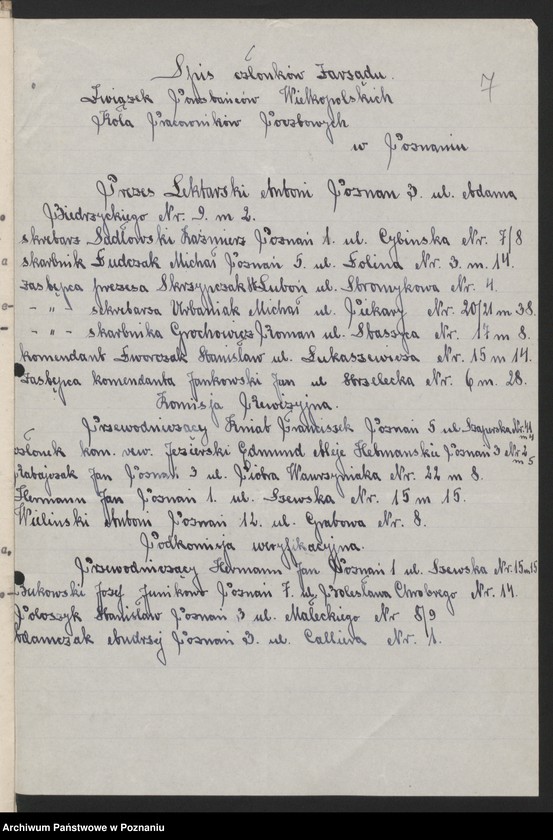 7
Spis członków Zarządu.
Związek Powstańców Wielkopolskich
Koła Pracowników Pocztowych
w Poznaniu
Prezes Lektarski Antoni Poznań 3. ul. Adama
Biedrzyckiego Nr. 9. m 2.
skretarz Sadłowski Kaźmierz Poznań 1. ul. Cybinska Nr. 7/8
skarbnik Michał Poznań 5. ul. Polina Nr. 3. m. 14.
zastępca prezesa Skrzypczak W. Luboń ul. Stromykowa Nr. 4.
- " - sekretarza Urbaniak Michał ul. Piekary Nr. 20/21 m 38.
- " - skarbnika Grochowicz Roman ul. Staszyca Nr. 17 m 8.
komendant Dworczak Stanisław ul. Łukaszewicza Nr. 15 m 14.
Zastępca komendanta Jankowski Jan ul Strzelecka Nr. 6 m. 28.
Komisja Rewizyjna.
Przewodniczący Kmiat Franciszek Poznań 5 ul. Nr. 41
członek kom. rew. Jezierski Edmund Aleje Hetmanskie Poznań 3 Nr 2 m 5
Ratajczak Jan Poznań 3 ul. Piotra Wawrzyniaka Nr. 22 m 8.
Hermann Jan Poznań 1. ul. Szewska Nr. 15 m 15.
Wielinski Antoni Poznań 12. ul. Grabowa Nr. 8.
Podkomisja weryfikacyjna.
Przewodniczący Hermann Jan Poznań 1 ul. Szewska Nr. 15 m 15
Żukowski Josef Junikowo Poznań 7. ul. Bolesława Chrobrego Nr. 14.
Stanisław Poznań 3 ul. Małeckiego Nr 8/9
Adamczak Andrzej Poznań 3. ul. Calliera Nr. 1.
Archiwum Państwowe w Poznaniu